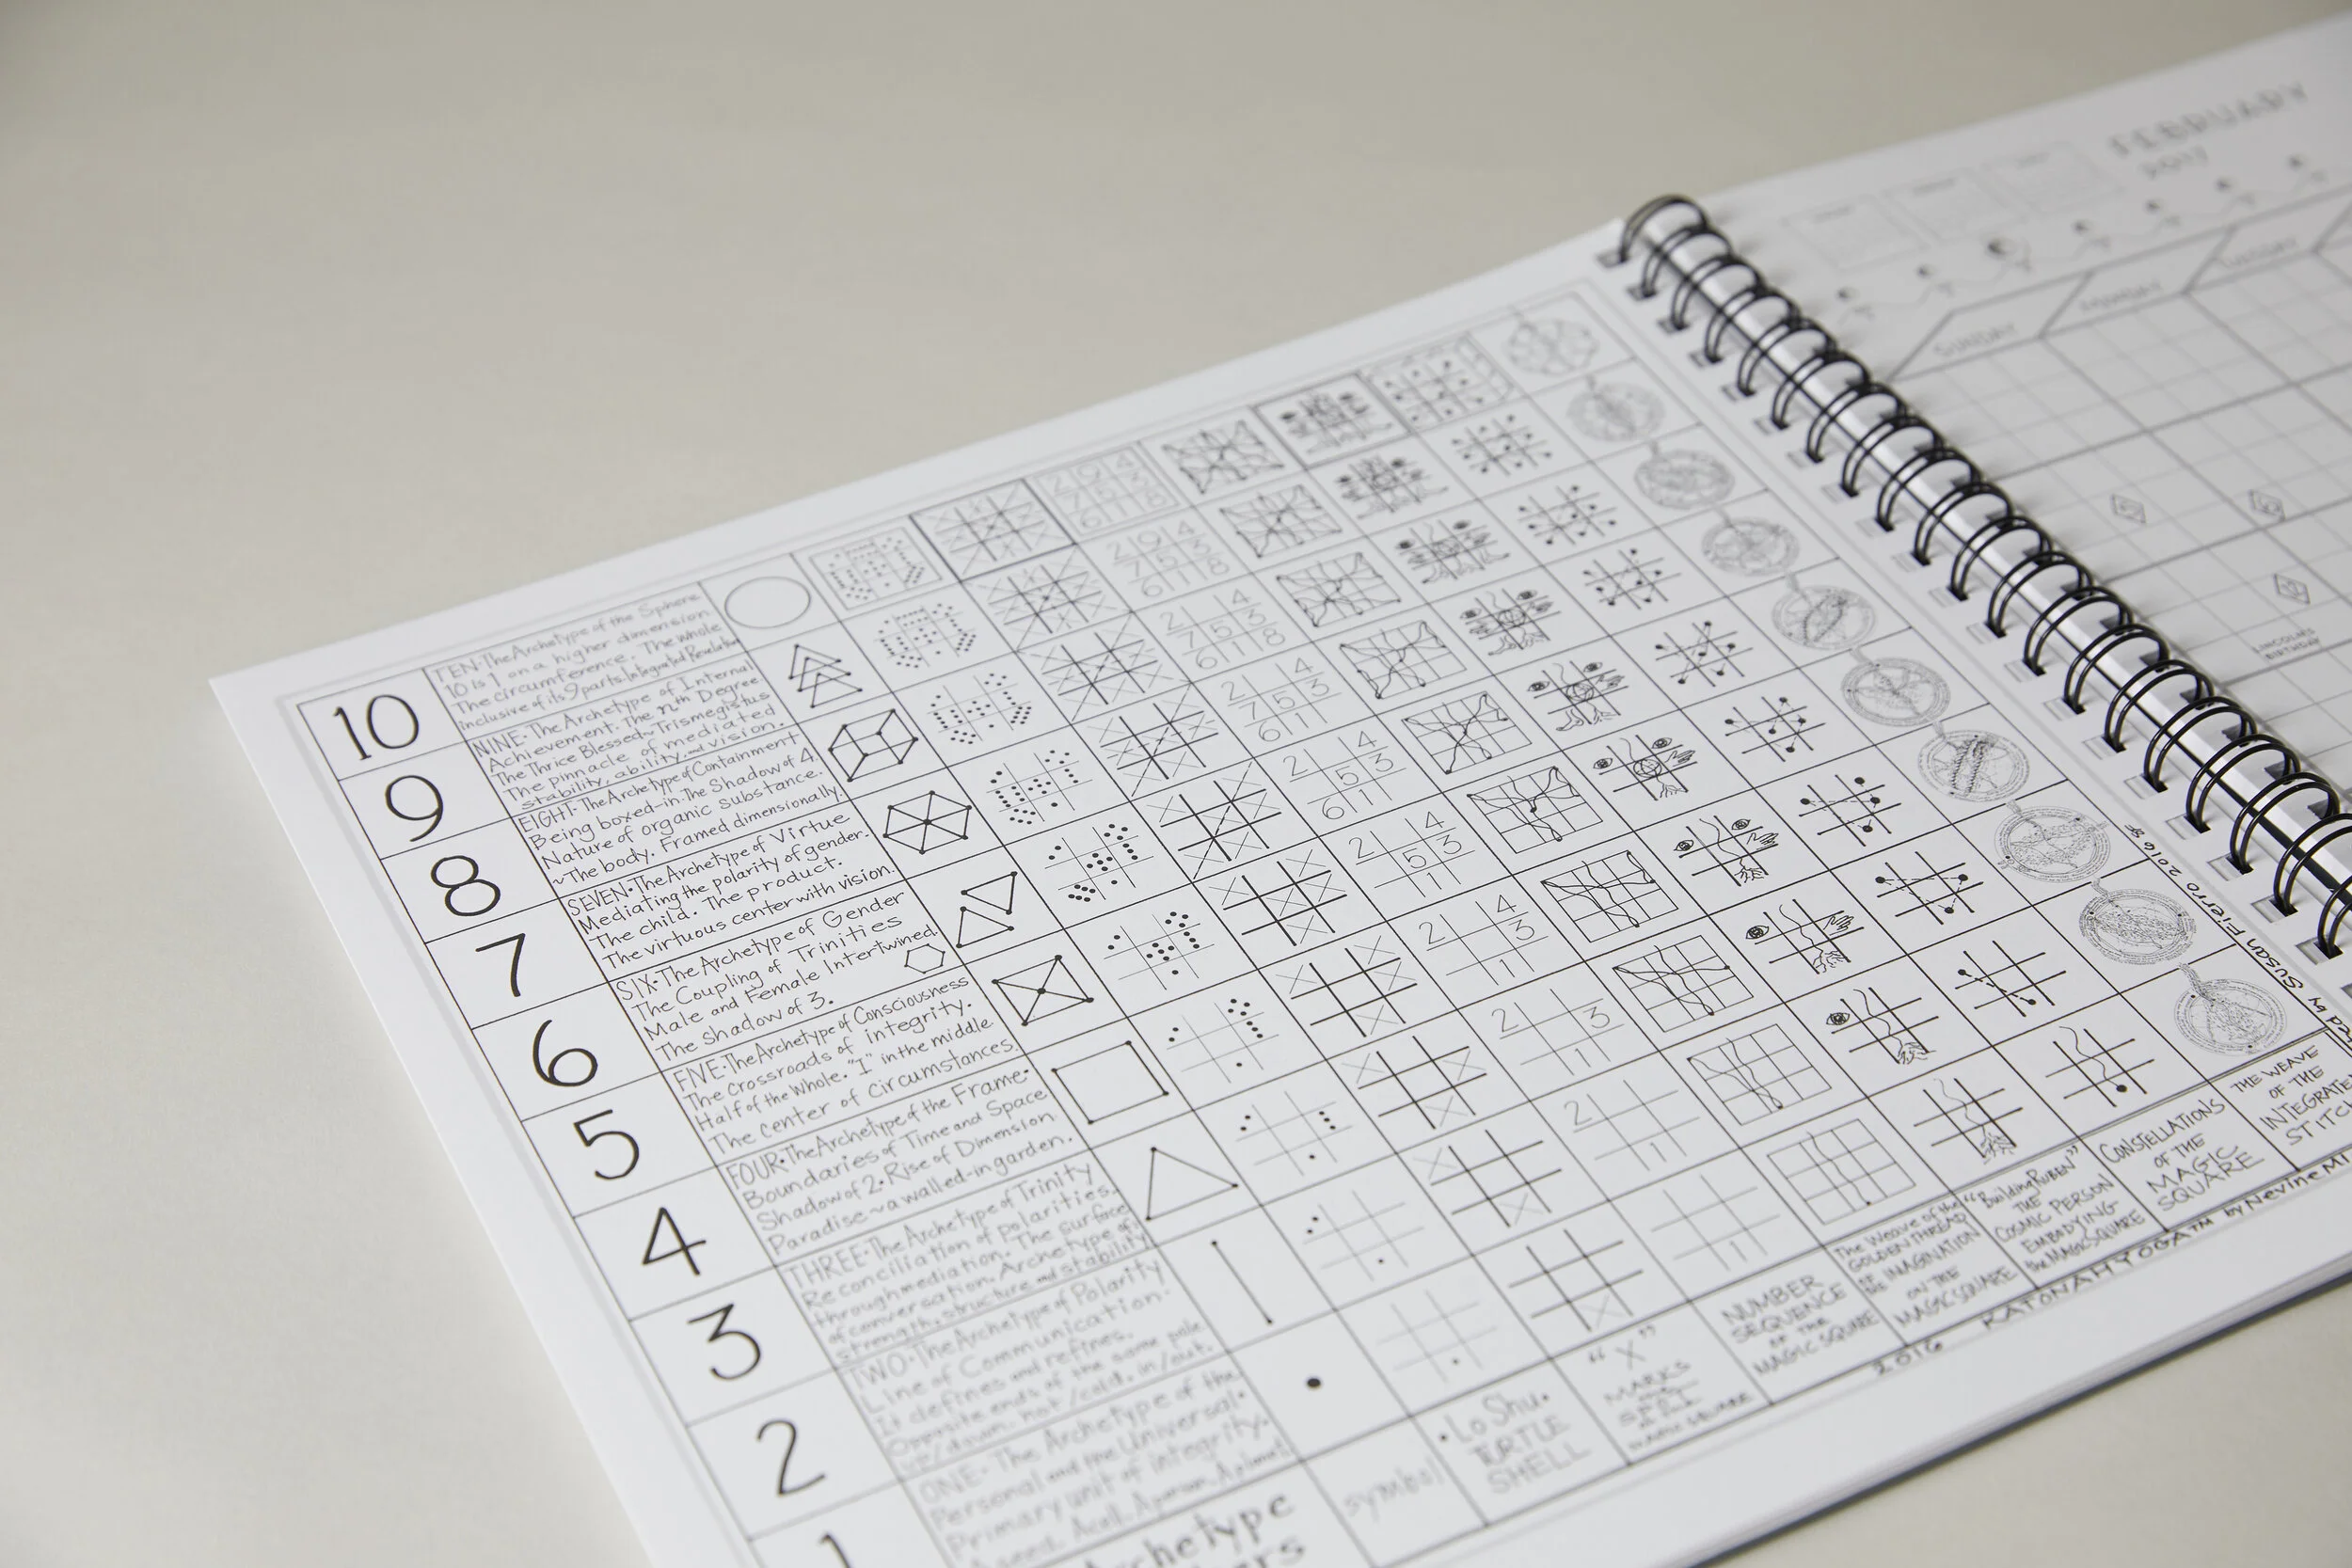 10
TEN·The Archetype of the Sphere
10 is 1 on a higher dimension
The circumference. The whole
inclusive of its 9 parts. Integrated Revelation
9
NINE·The Archetype of Internal
Achievement. The nth Degree.
The Thrice Blessed~Trismegistus
The pinnacle of mediated
stability, ability, and vision.
8
EIGHT·The Archetype of Containment
Being boxed-in. The Shadow of 4.
Nature of organic substance.
~The body. Framed dimensionally.
7
SEVEN·The Archetype of Virtue
Mediating the polarity of gender.
The child. The product.
The virtuous center with vision.
6
SIX·The Archetype of Gender
The Coupling of Trinities
Male and Female Intertwined
The shadow of 3.
5
FIVE·The Archetype of Consciousness
The crossroads of integrity.
Half of the Whole. "I" in the middle
The center of circumstances.
4
FOUR·The Archetype of the Frame·
Boundaries of Time and Space
Shadow of 2·Rise of Dimension
Paradise~a walled-in garden.
3
THREE·The Archetype of Trinity
Reconciliation of polarities.
through mediation. The surface
of conversation. Archetype of
strength, structure and stability
2
TWO·The Archetype of Polarity
Line of Communication·
It defines and refines.
Opposite ends of the same pole
up/down, hot/cold, in/out.
1
ONE· The Archetype of the
Personal and the Universal·
Primary unit of integrity.
A seed. A cell. A person. A planet
Archetype
symbol
·Lo Shu·
TURTLE
SHELL
"X"
MARKS
NUMBER
SEQUENCE
OF THE
MAGIC SQUARE
The Weave of the
GOLDEN THREAD
OF THE IMAGINATION
ON THE
MAGIC SQUARE
"Building Ruben"
THE
COSMIC PERSON
EMBODYING~
the MAGIC SQUARE
CONSTELLATIONS
OF THE
MAGIC
SQUARE
THE WEAVE
OF THE
INTEGRATE
STITCH
2 9 4
7 5 3
6 1 8
2 9 4
7 5 3
6 1 8
2 4
7 5 3
6 1 8
2 4
7 5 3
6 1
2 4
5 3
6 1
2 4
5 3
1
2 4
3
1
2 3
1
2
1
1
2016 KATONAH YOGA™ by Nevine Mi
by Susan Fierro 2016
FEBRUARY
2017
SUNDAY
MONDAY
TUESDAY
LINCOLN'S
BIRTHDAY